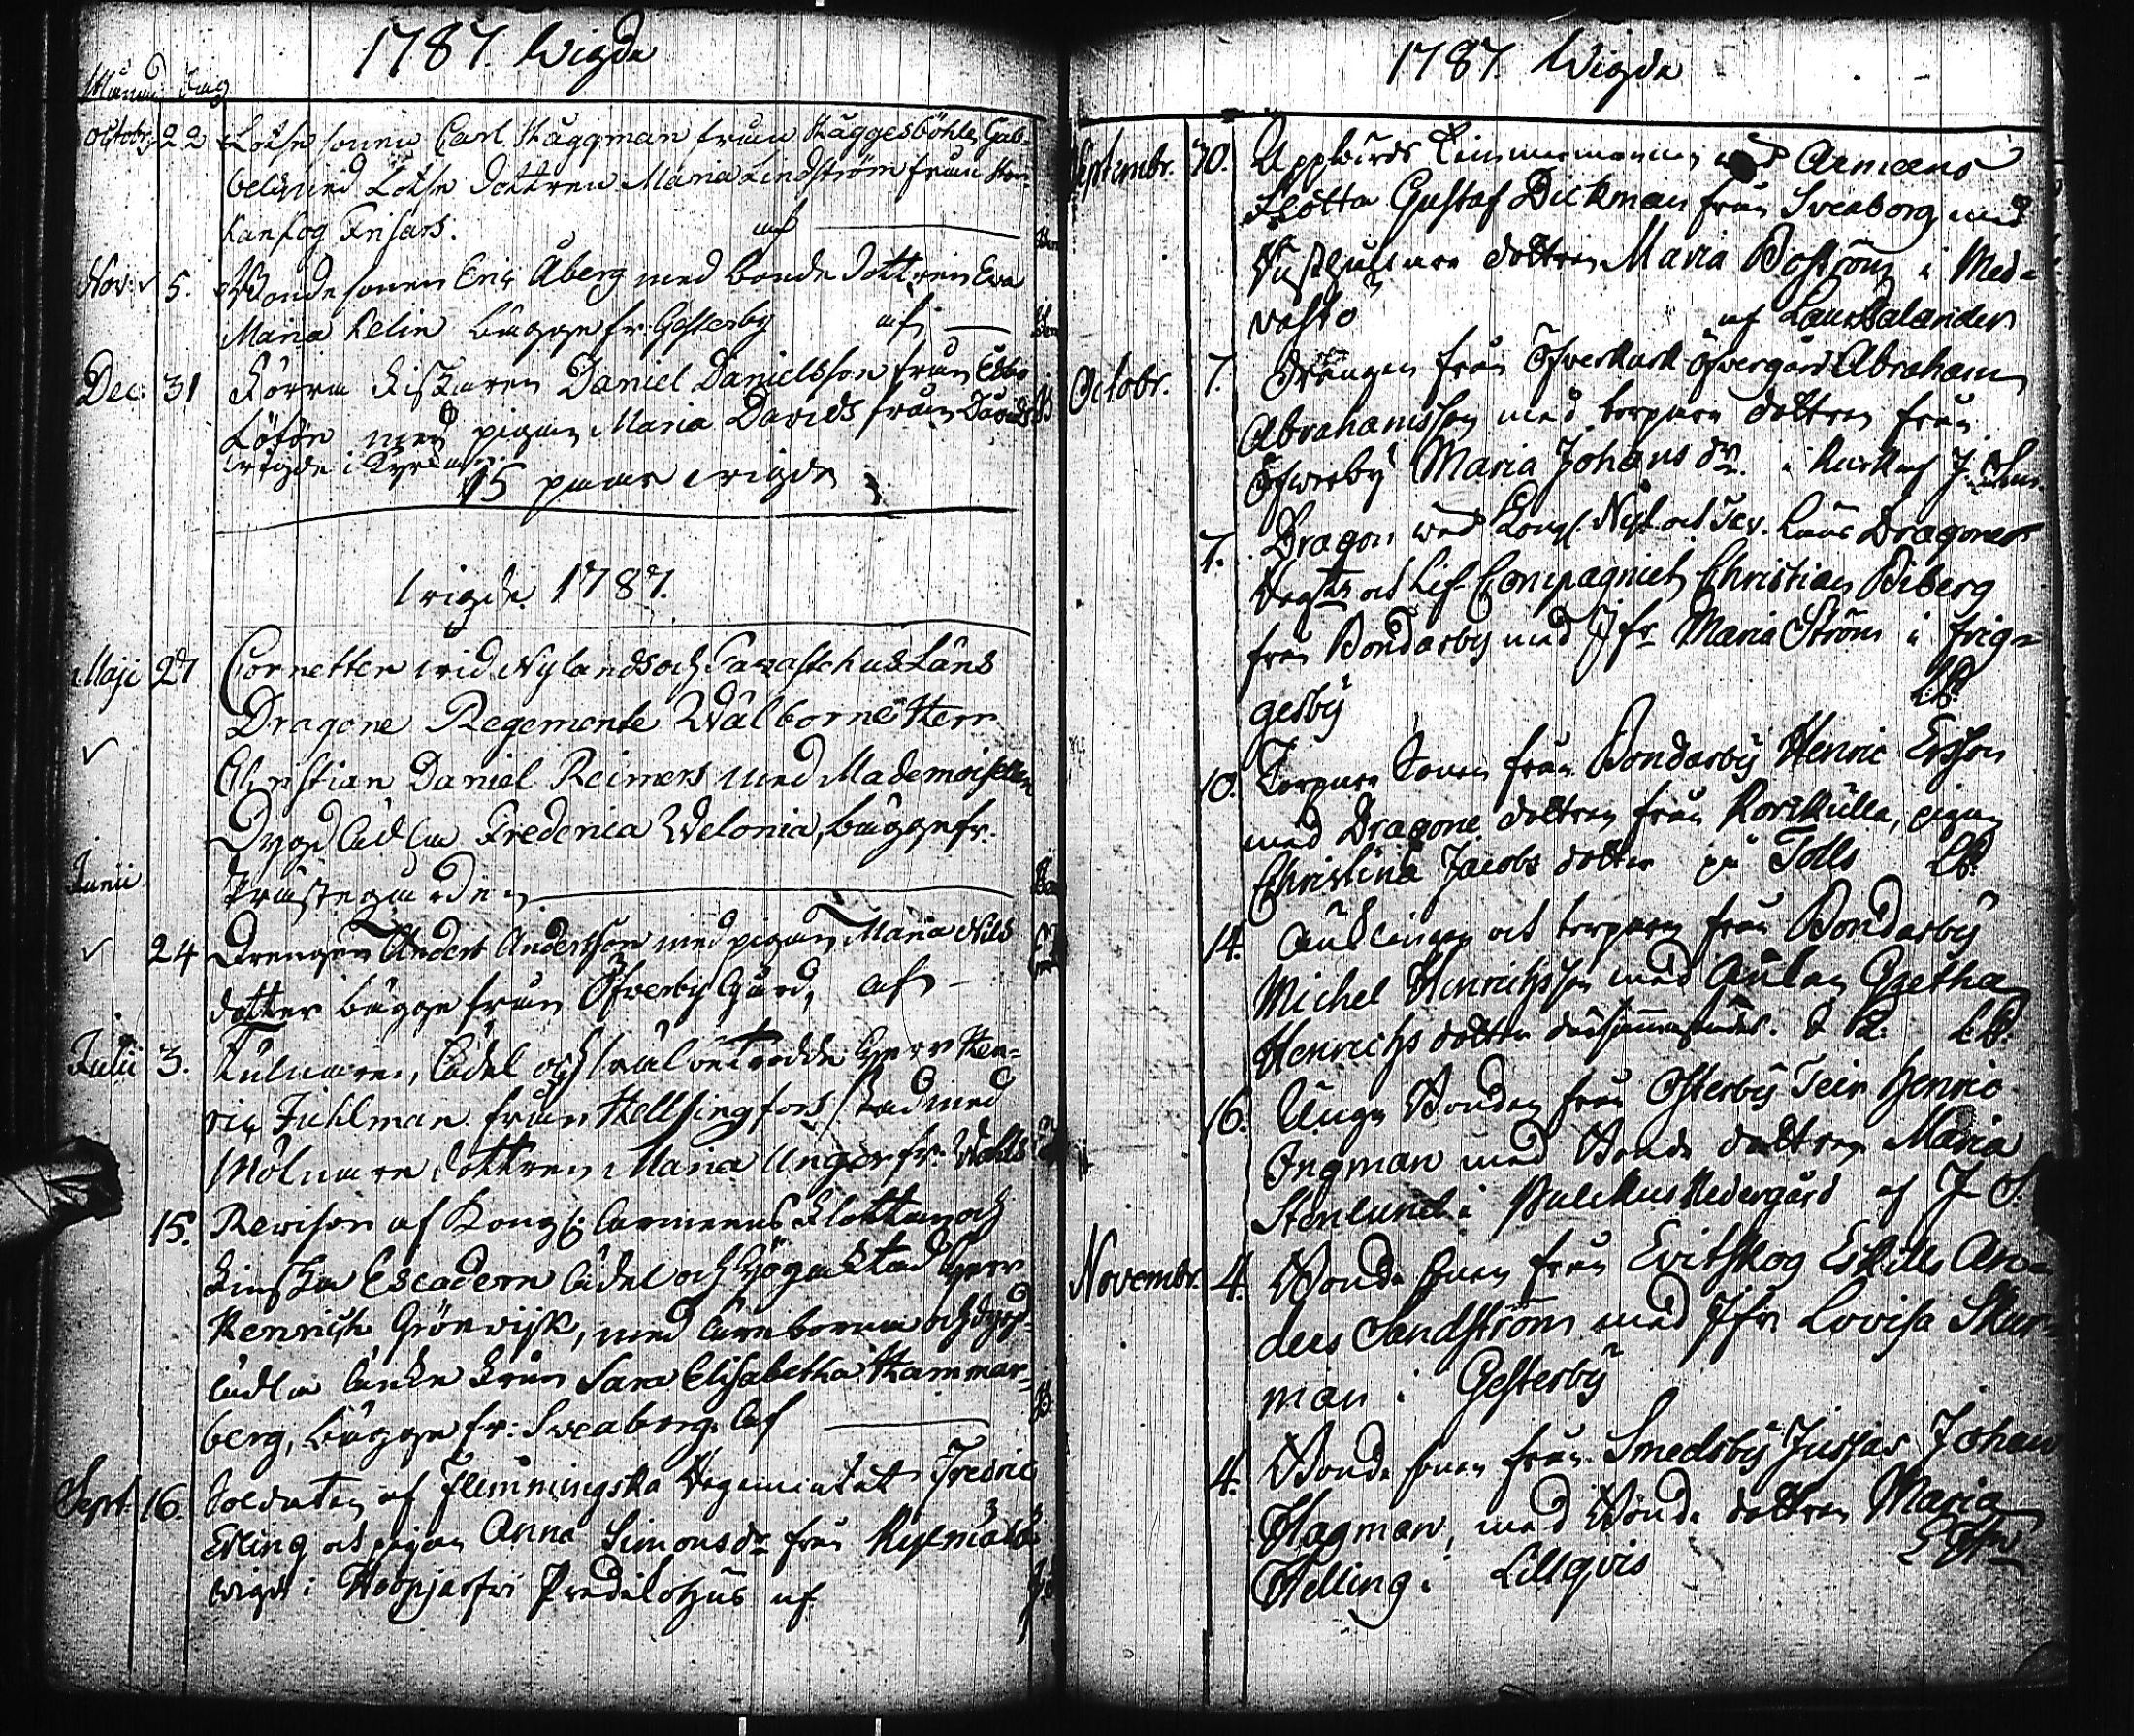 1787. Wigde
Månad Dag
Octobr. 22 Lots sonen Carl Skäggman från Skäggesböhle, Gab-
bels med Lots dottren Maria Lindström från
Kanskog Frisars. af
Nov. 5. Bonde sonen Eric Åberg med bonde dottren Eva
Maria Relin bägge fr. Gesterby af
Dec. 31 Daniel Danielsson från Esbo
Löfön med pigan Maria Davids från
wigde i Kyrckan.
15 paar wigde
wigde 1787.
Maji 27 Cornetten wid Nylands och Tavastehus Läns
Dragone Regemente Wälborne Herr
Christian Daniel Reimers med Mademoisellen
Dygdädla Frederica Welonia, bägge fr.
Junii Prästegården
24 Drengen Anders Andersson med pigan Maria Nils
dotter bägge från Öfverby Gård, af
Julii 3. ädel och Herr Hen-
ric Fuhlman från Hellsingfors stad med
Mölnare dottren Maria Unger fr.
15. Revisorn af Kongl. Arméens Flotta och
Finska Escadern ädel och Högacktad Herr
Henrich Grönvijk, med ärneborna och dygd-
ädla änke frun Sara Elisabetha Hammar-
berg, bägge fr. Sveaborg. af
Sept. 16. Soldaten af Flemmingska Regementet Fredric
Erling och pigan Anna Simonsdr från
wigd i Haapjarfvi Predikohus af
1787. Wigde
Septembr. 30. Uppbörds Timmermannen wid Armeens
Flotta Gustaf Dickman från Sveaborg med
dottren Maria Boström i Med-
vasto af Laur. Salander
Octobr. 7. Drängen från Öfverkurk Öfvergård Abraham
Abrahamsson med torpare dottren från
Öfwerby Maria Johans dr. i kurk af J.
7. Dragon wid Kongl. Nyl. och Tav. Läns Dragoner
Regte. och Lif Compagniet, Christian Biberg
från Bondarby med Jfr Maria Ström i Frig-
gesby LS.
10. Torpare Sonen från Bondarby Henric Ersson
med Dragone dottren från Korskulla, pigan
Christina Jacobs dotter på Tolls LS.
14. Enklingen och torparen från Bondarby
Michel Henrichsson med Enkan Gretha
Henrichs dotter därsammastädes. LS.
16. Unga Bonden från Österby Teir Henric
Ingman med Bonde dottren Maria
Stenlund i Nedergård af J. S.
Novembr. 4. Bonde sonen från Evitskog Eskills An-
ders Sandström med Jfr Lovisa Skur-
man i Gesterby
4. Bonde sonen från Smedsby Jussas Johan
Hagman, med Bonde dottren Maria
Helling i Lillqvis